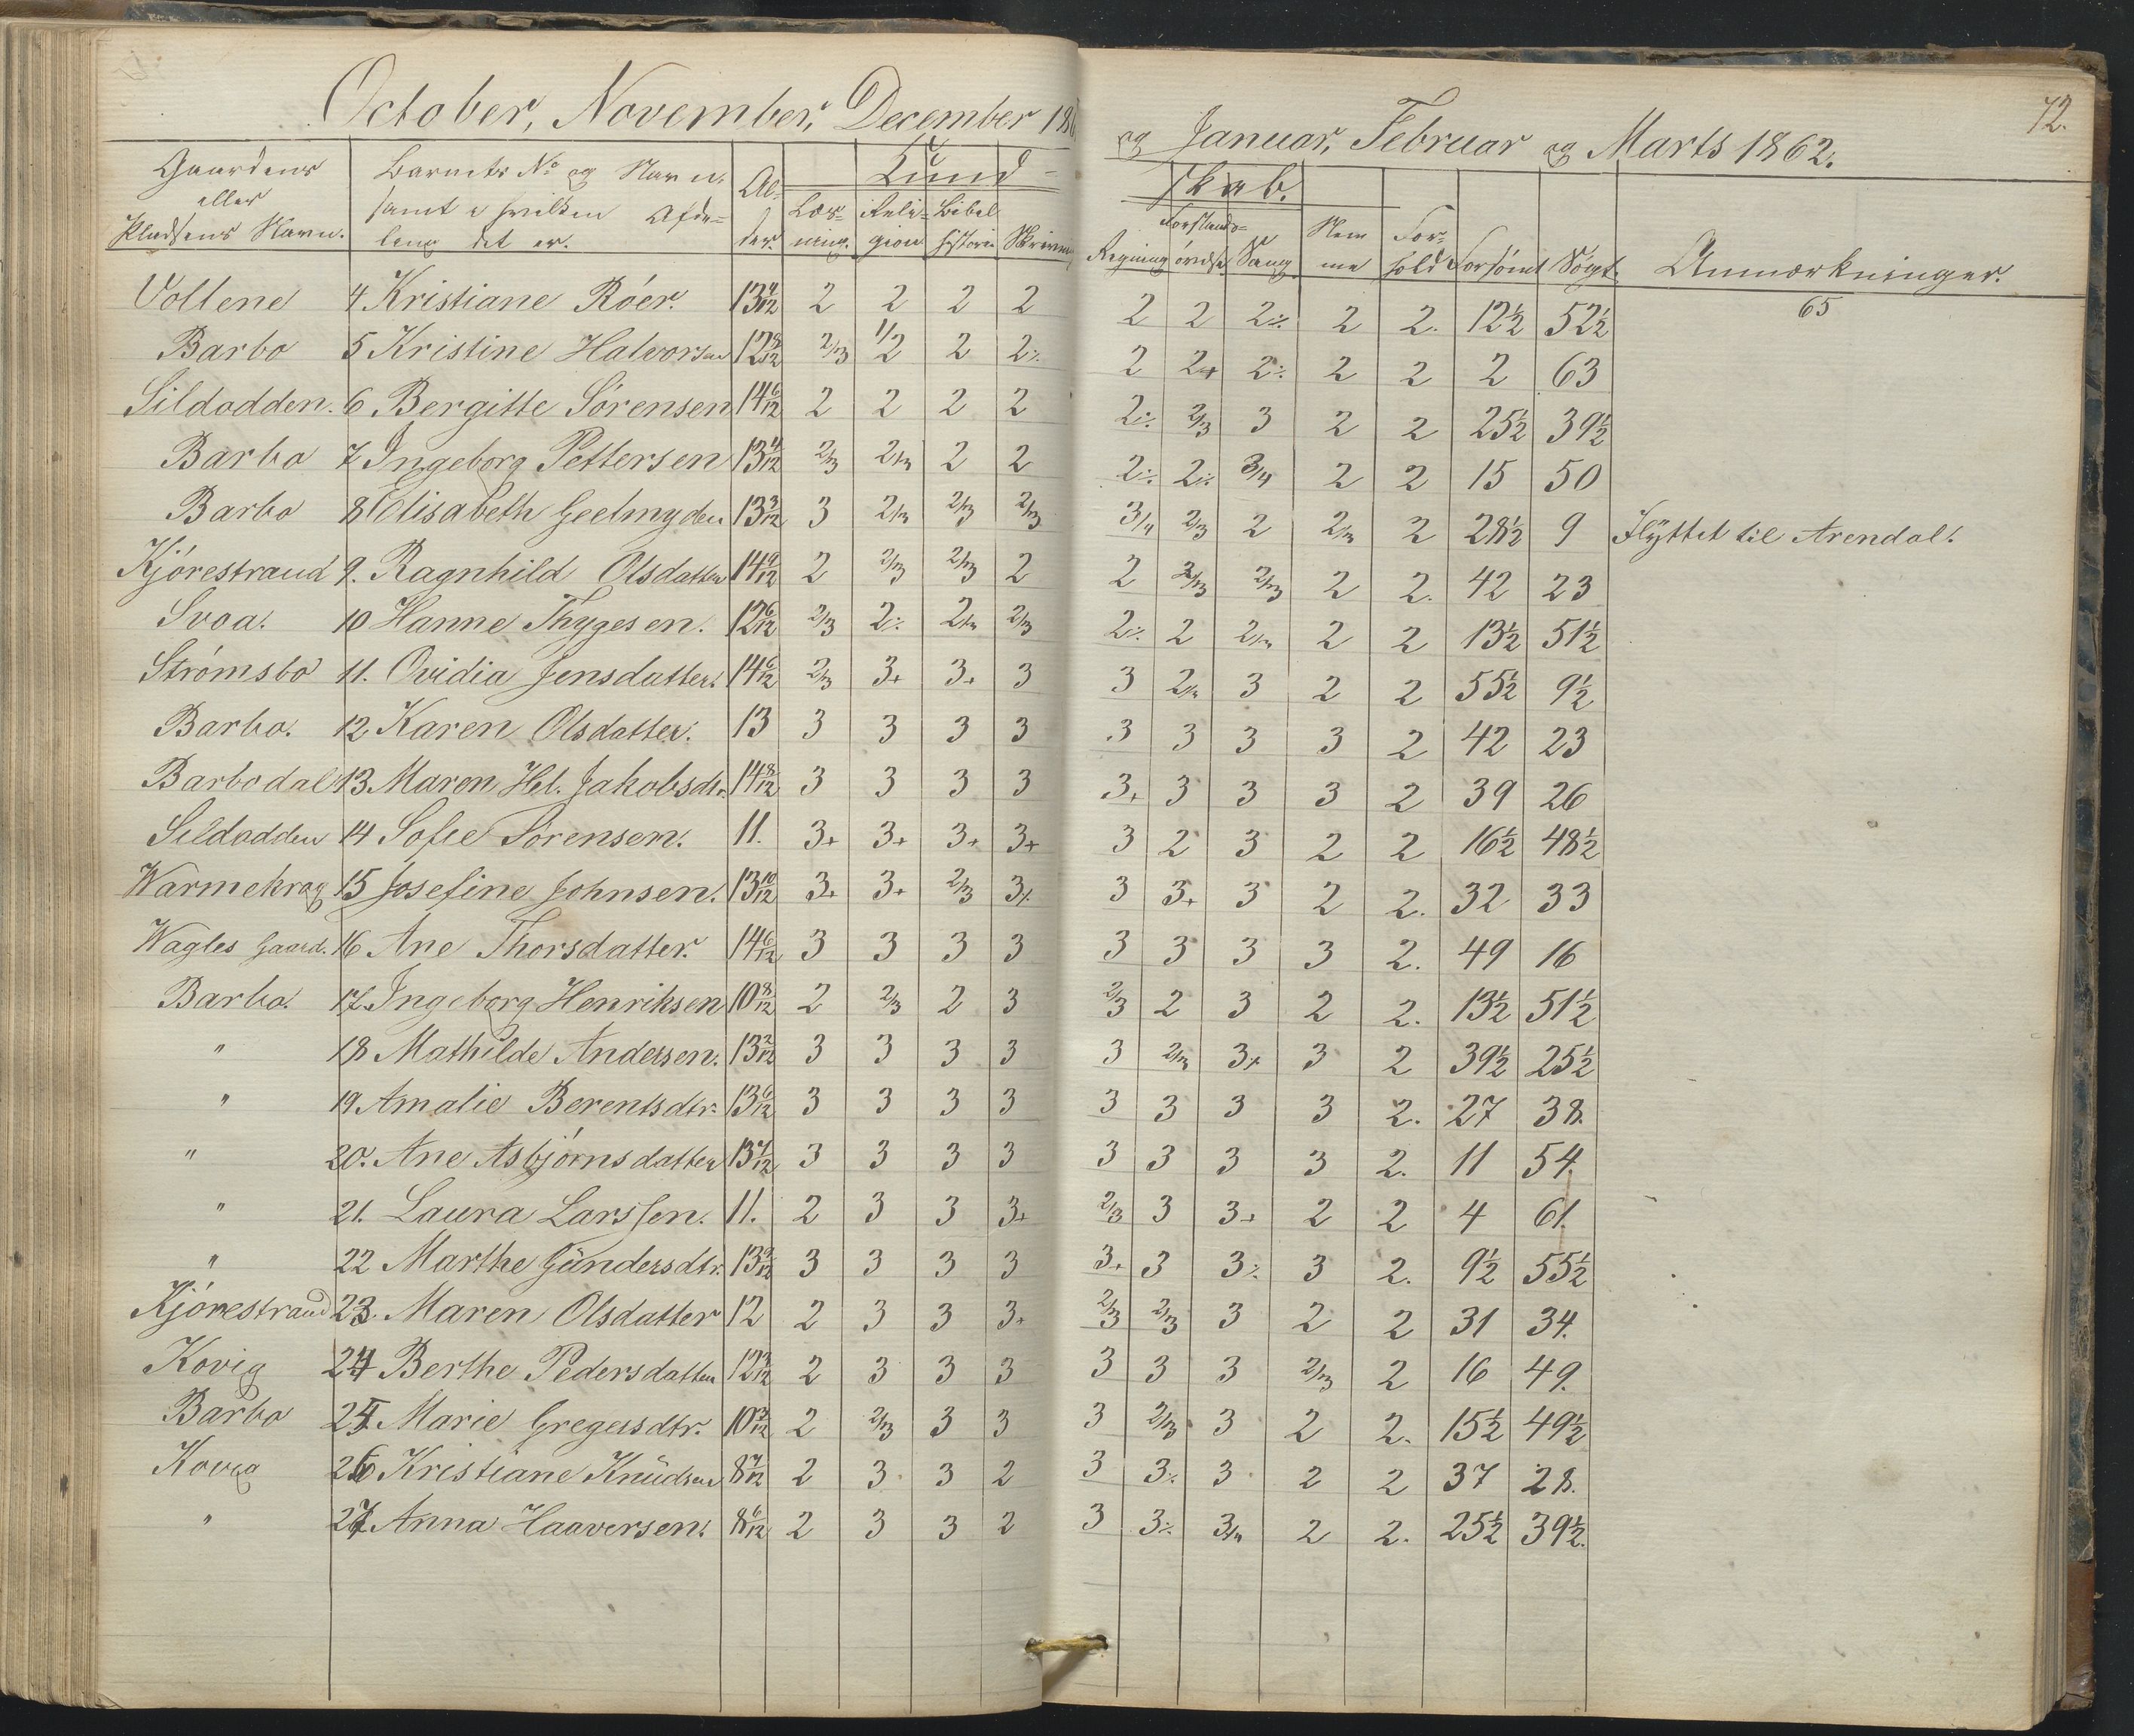 October, November, December 186 og Januar, Februar og Marts 1862.
72.
Gaardens eller Pladsens Navn. | Barnets No og Navn samt i hvilken Afdeling det er. | Alder. | Kundskab. | Læsning. | Religion | Bibelhistorie | Skrivning | Regning | Forstandsøvelse | Sang | Nemme | Forhold | Forsømt | Søgt | Anmærkninger.
Vollene 4 Kristiane Róer. 13 4/12 2 2 2 2 2 2 2% 2 2. 12½ 52½ 65
Barbo 5 Kristine Halvorsen 12 2/3 1/2 2 2% 2 2+ 2% 2 2 2 63
Sildodden. 6 Bergitte Sórensen 14 6/12 2 2 2 2 2% 2/3 3 2 2 25½ 39½
Barbo 7 Ingeborg Pettersen 13 4/12 2/3 2/3 2 2 2% 2% 3/4 2 2 15 50
Barbo 8 Elisabeth Geelmyden 13 3/12 3 2/3 2/3 2/3 3/4 2/3 2 2/3 2 28½ 9 Flyttet til Arendal.
Kjórestrand 9. Ragnhild Olsdatter 14 9/12 2 2/3 2/3 2 2 2/3 2/3 2 2. 42 23
Svoa. 10 Hanne Thygesen. 12 6/12 2/3 2% 2/3 2/3 2% 2 2/3 2 2 13½ 51½
Strómsbo 11. Ovidia Jensdatter. 14 6/12 2/3 3+ 3+ 3 3 2/3 3 2 2 55½ 9½
Barbo. 12 Karen Olsdatter. 13 3 3 3 3 3 3 3 3 2 42 23
Barbodal 13. Maren Hel. Jakobsdtr. 14 8/12 3 3 3 3 3+ 3 3 3 2 39 26
Sildodden 14 Sofie Sorensen. 11. 3+ 3+ 3+ 3+ 3 2 3 2 2 16½ 48½
Warmekrog 15 Josefine Johnsen. 13 10/12 3+ 3+ 2/3 3% 3 3+ 3 2 2. 32 33
Wagles Gaard. 16 Ane Thorsdatter. 14 6/12 3 3 3 3 3 3 3 3 2. 49 16
Barbo. 17. Ingeborg Henriksen 10 8/12 2 2/3 2 3 2/3 2 3 2 2. 13½ 51½
" 18 Mathilde Andersen. 13 3/12 3 3 3 3 3 2/3 3+ 3 2 39½ 25½
" 19 Amalie Berentsdtr. 13 6/12 3 3 3 3 3 3 3 3 2. 27 38.
" 20. Ane Asbjórnsdatter 13 7/12 3 3 3 3 3 3 3 3 2. 11 54.
" 21. Laura Larssen. 11. 2 3 3 3+ 2/3 3 3+ 2 2 4 61.
" 22 Marthe Gündersdtr. 13 3/12 3 3 3 3 3+ 3 3% 3 2. 9½ 55½
Kjórestrand 23. Maren Olsdatter 12 2 3 3 3+ 2/3 2/3 3 2 2 31 34.
Kovig 24 Berthe Pedersdatter 12 3/12 2 3 3 3 3 3 3 2/3 2 16 49.
Barbo 25 Marie Gregersdtr. 10 3/12 2 2/3 3 3 3 2/3 3 2 2. 15½ 49½
Kovig 26 Kristiane Knüdsen 8 7/12 2 3 3 2 3 3% 3 2 2 37 28.
" 27 Anna Haaversen. 8 6/12 2 3 3 2 3 3% 3/4 2 2. 25½ 39½.